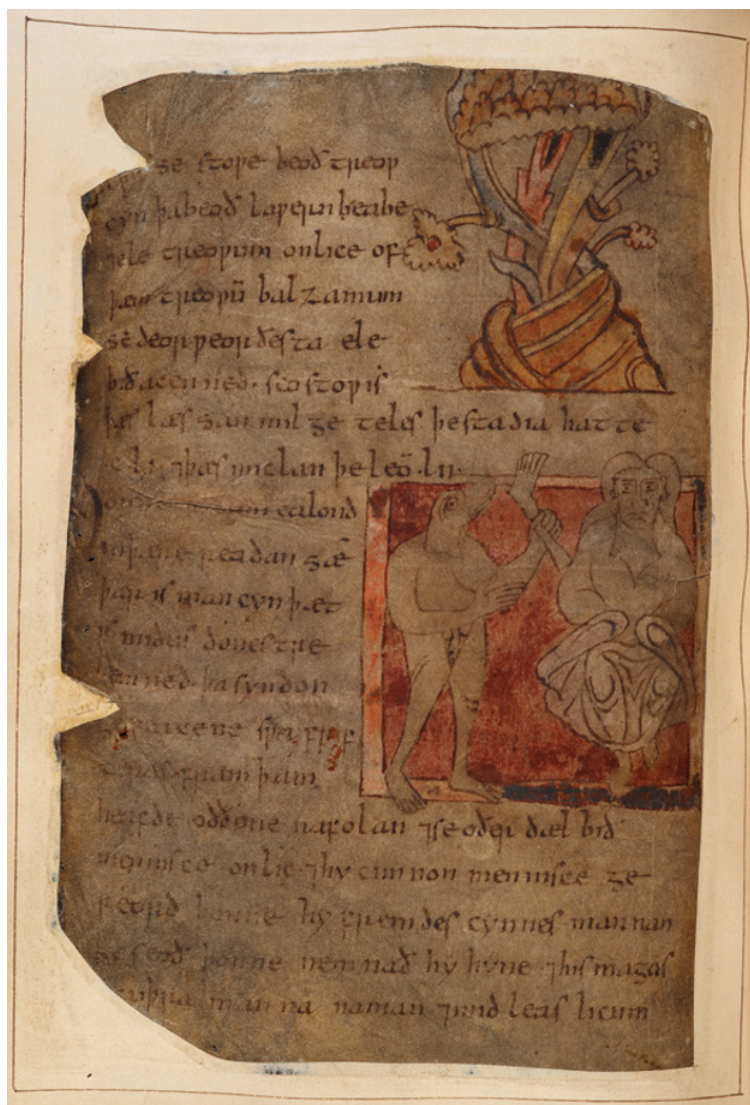 stoƿe beoð treoƿ
cyn þa beoð laƿern beabe
⁊ ele treoƿum onlice of
þæm treoƿū balzamum
se deorƿeorðesta ele
bið acenned · seo stoƿ is
þæs læs san mil ge teles þe stadia hatte
c li ⁊ þæs miclan þe leō · lii ·
ealond
in þære readan sæ
þær is man cyn þæt
is mid us donestre
nemned þa syndon
geƿeaxene sƿa
fram þam
heafde oððone nafolan ⁊ se oðer dæl bið
mennisce onlic ⁊ hy cunnon mennisce ge
reord þonne hy fremdes cynnes mannan
geseoð þonne nemnað hy hyne ⁊ his magas
cuþra manna naman ⁊ mid leas licum